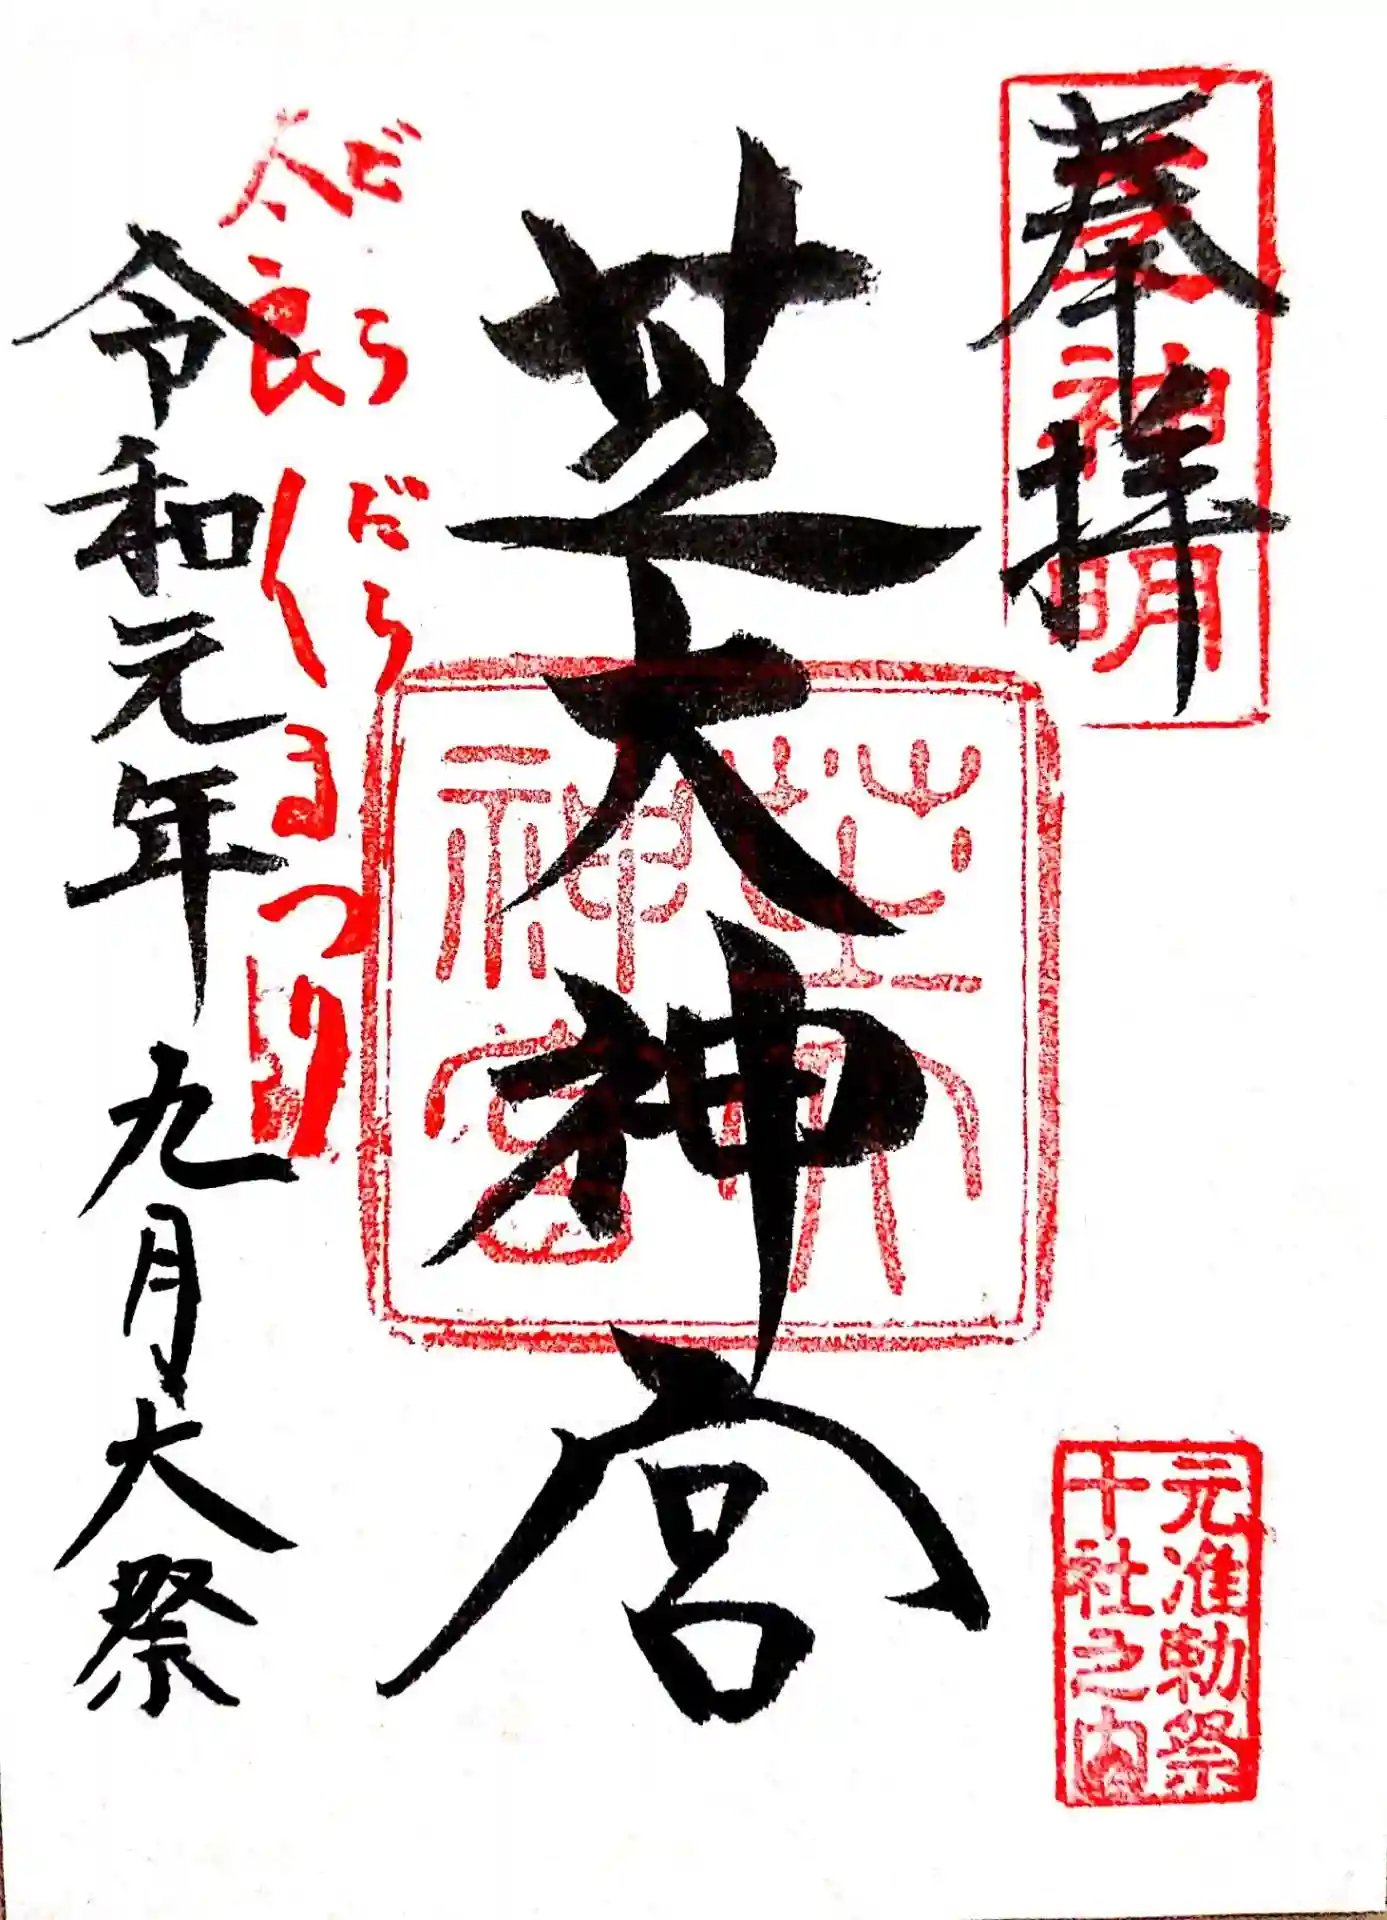 奉拝
神明
元准勅祭
十社之内
芝大神宮
芝大
神宮
だらだら
太良くまつり
令和元年九月大祭